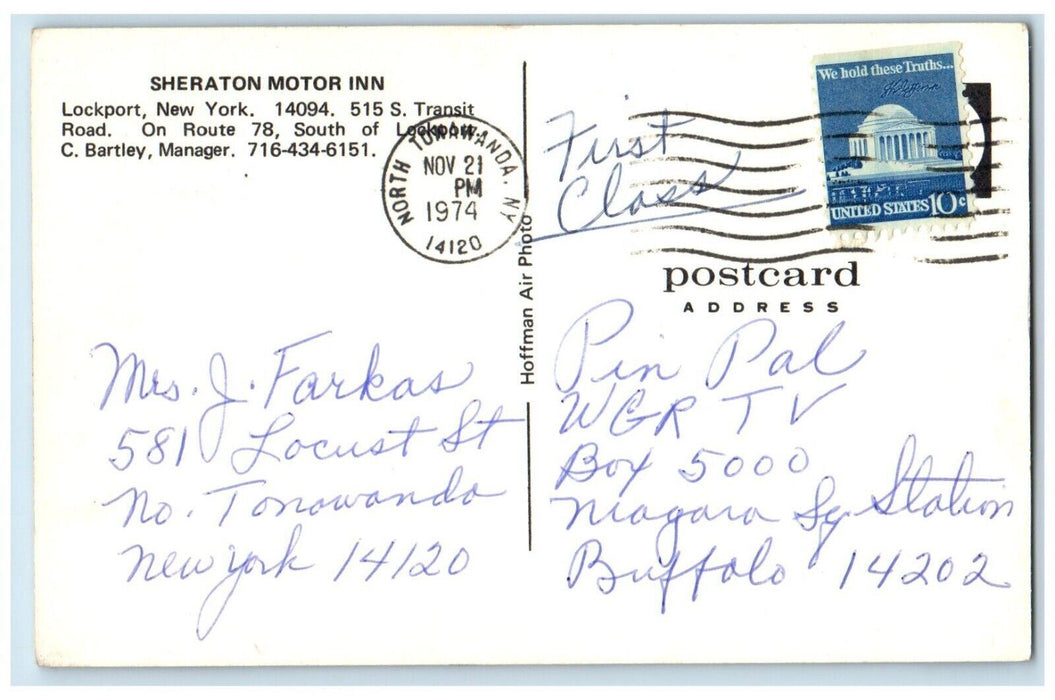 SHERATON MOTOR INN
Lockport, New York. 14094. 515 S. Transit
Road. On Route 78, South of Lockport.
C. Bartley, Manager. 716-434-6151.
NORTH TONAWANDA, NY
NOV 21
PM
1974
14120
First
Class
We hold these Truths...
UNITED STATES 10c
Hoffman Air Photo
postcard
ADDRESS
Mrs. J. Farkas
581 Locust St
No. Tonawanda
New York 14120
Pin Pal
WGR TV
Box 5000
Niagara Sq Station
Buffalo 14202